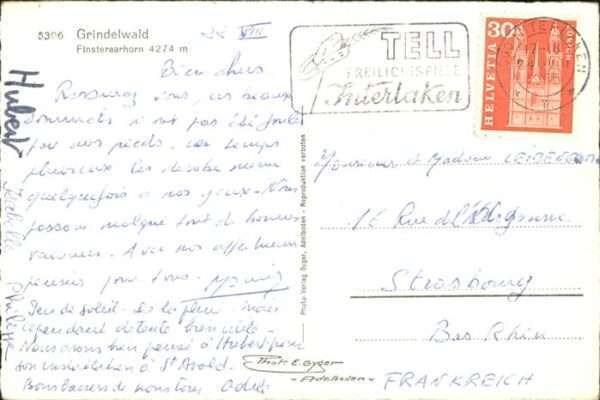 5306 Grindelwald
Finsteraarhorn 4274 m
22 VIII
TELL
FREILICHTSPIELE
Interlaken
HELVETIA
30
INTERLAKEN
Bien chers
Rassurez vous, ces beaux
sommets n'ont pas été foulés
par nos pieds. Un temps
pluvieux les dérobe même
quelquefois à nos yeux. Nous
passons malgré tout de bonnes
vacances. Avec nos affectueuses
pensées pour tous.
Peu de soleil de la pluie mais
cependant détente bien utile.
Nous avons bien pensé à Hubert pour
son installation à St Avold.
Bons baisers de nous tous Adèle
Hubert
Isabelle Philippe
Photo-Verlag Gyger, Adelboden - Reproduktion verboten
Monsieur et Madame
16 Rue de l'Argonne
Strasbourg
Bas Rhin
FRANKREICH
Phot. E. Gyger
Adelboden